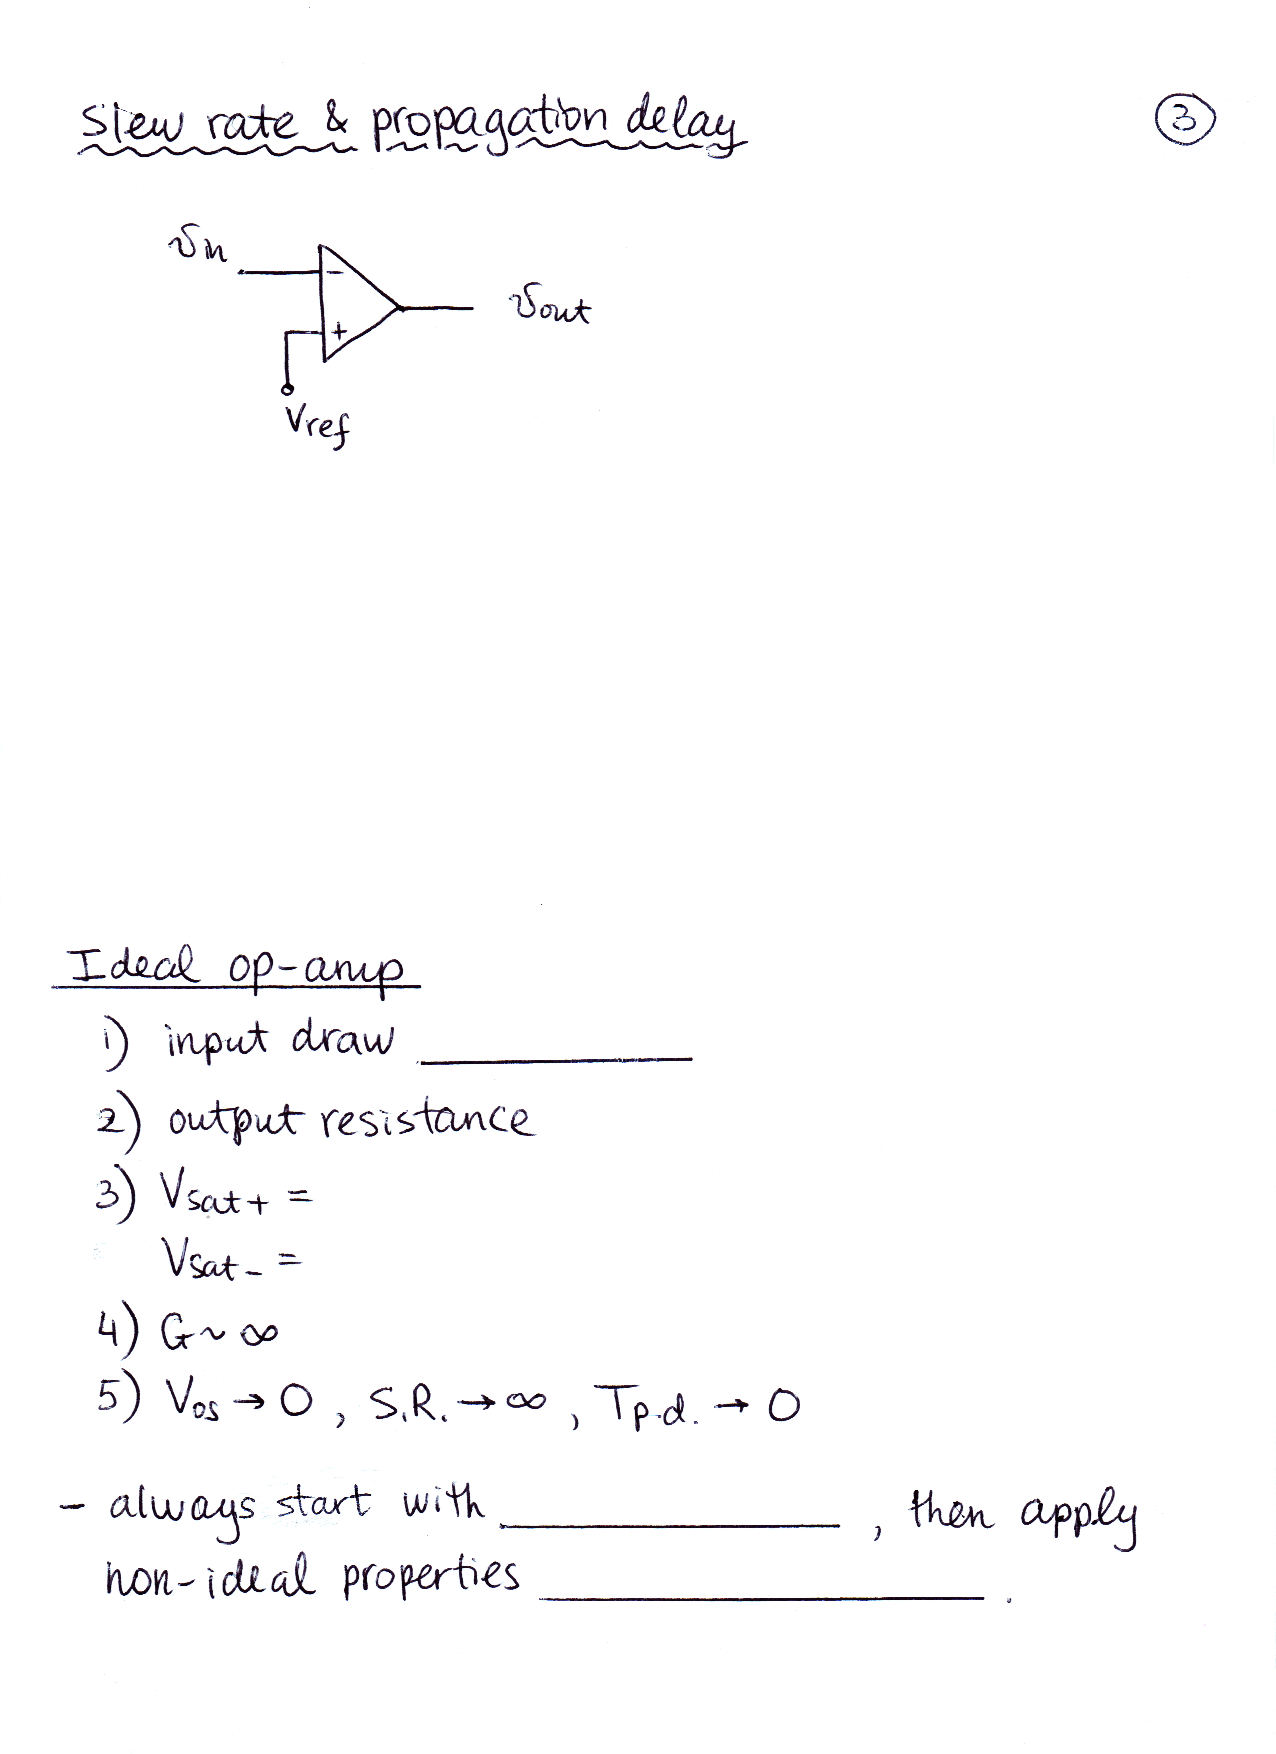 Slew rate & propagation delay
3
Vin
-
Vout
+
Vref
Ideal op-amp
1) input draw ____________
2) output resistance
3) Vsat+ =
Vsat- =
4) G ~ ∞
5) Vos → 0, S.R. → ∞, Tp.d. → 0
- always start with ______________, then apply
non-ideal properties ___________________.